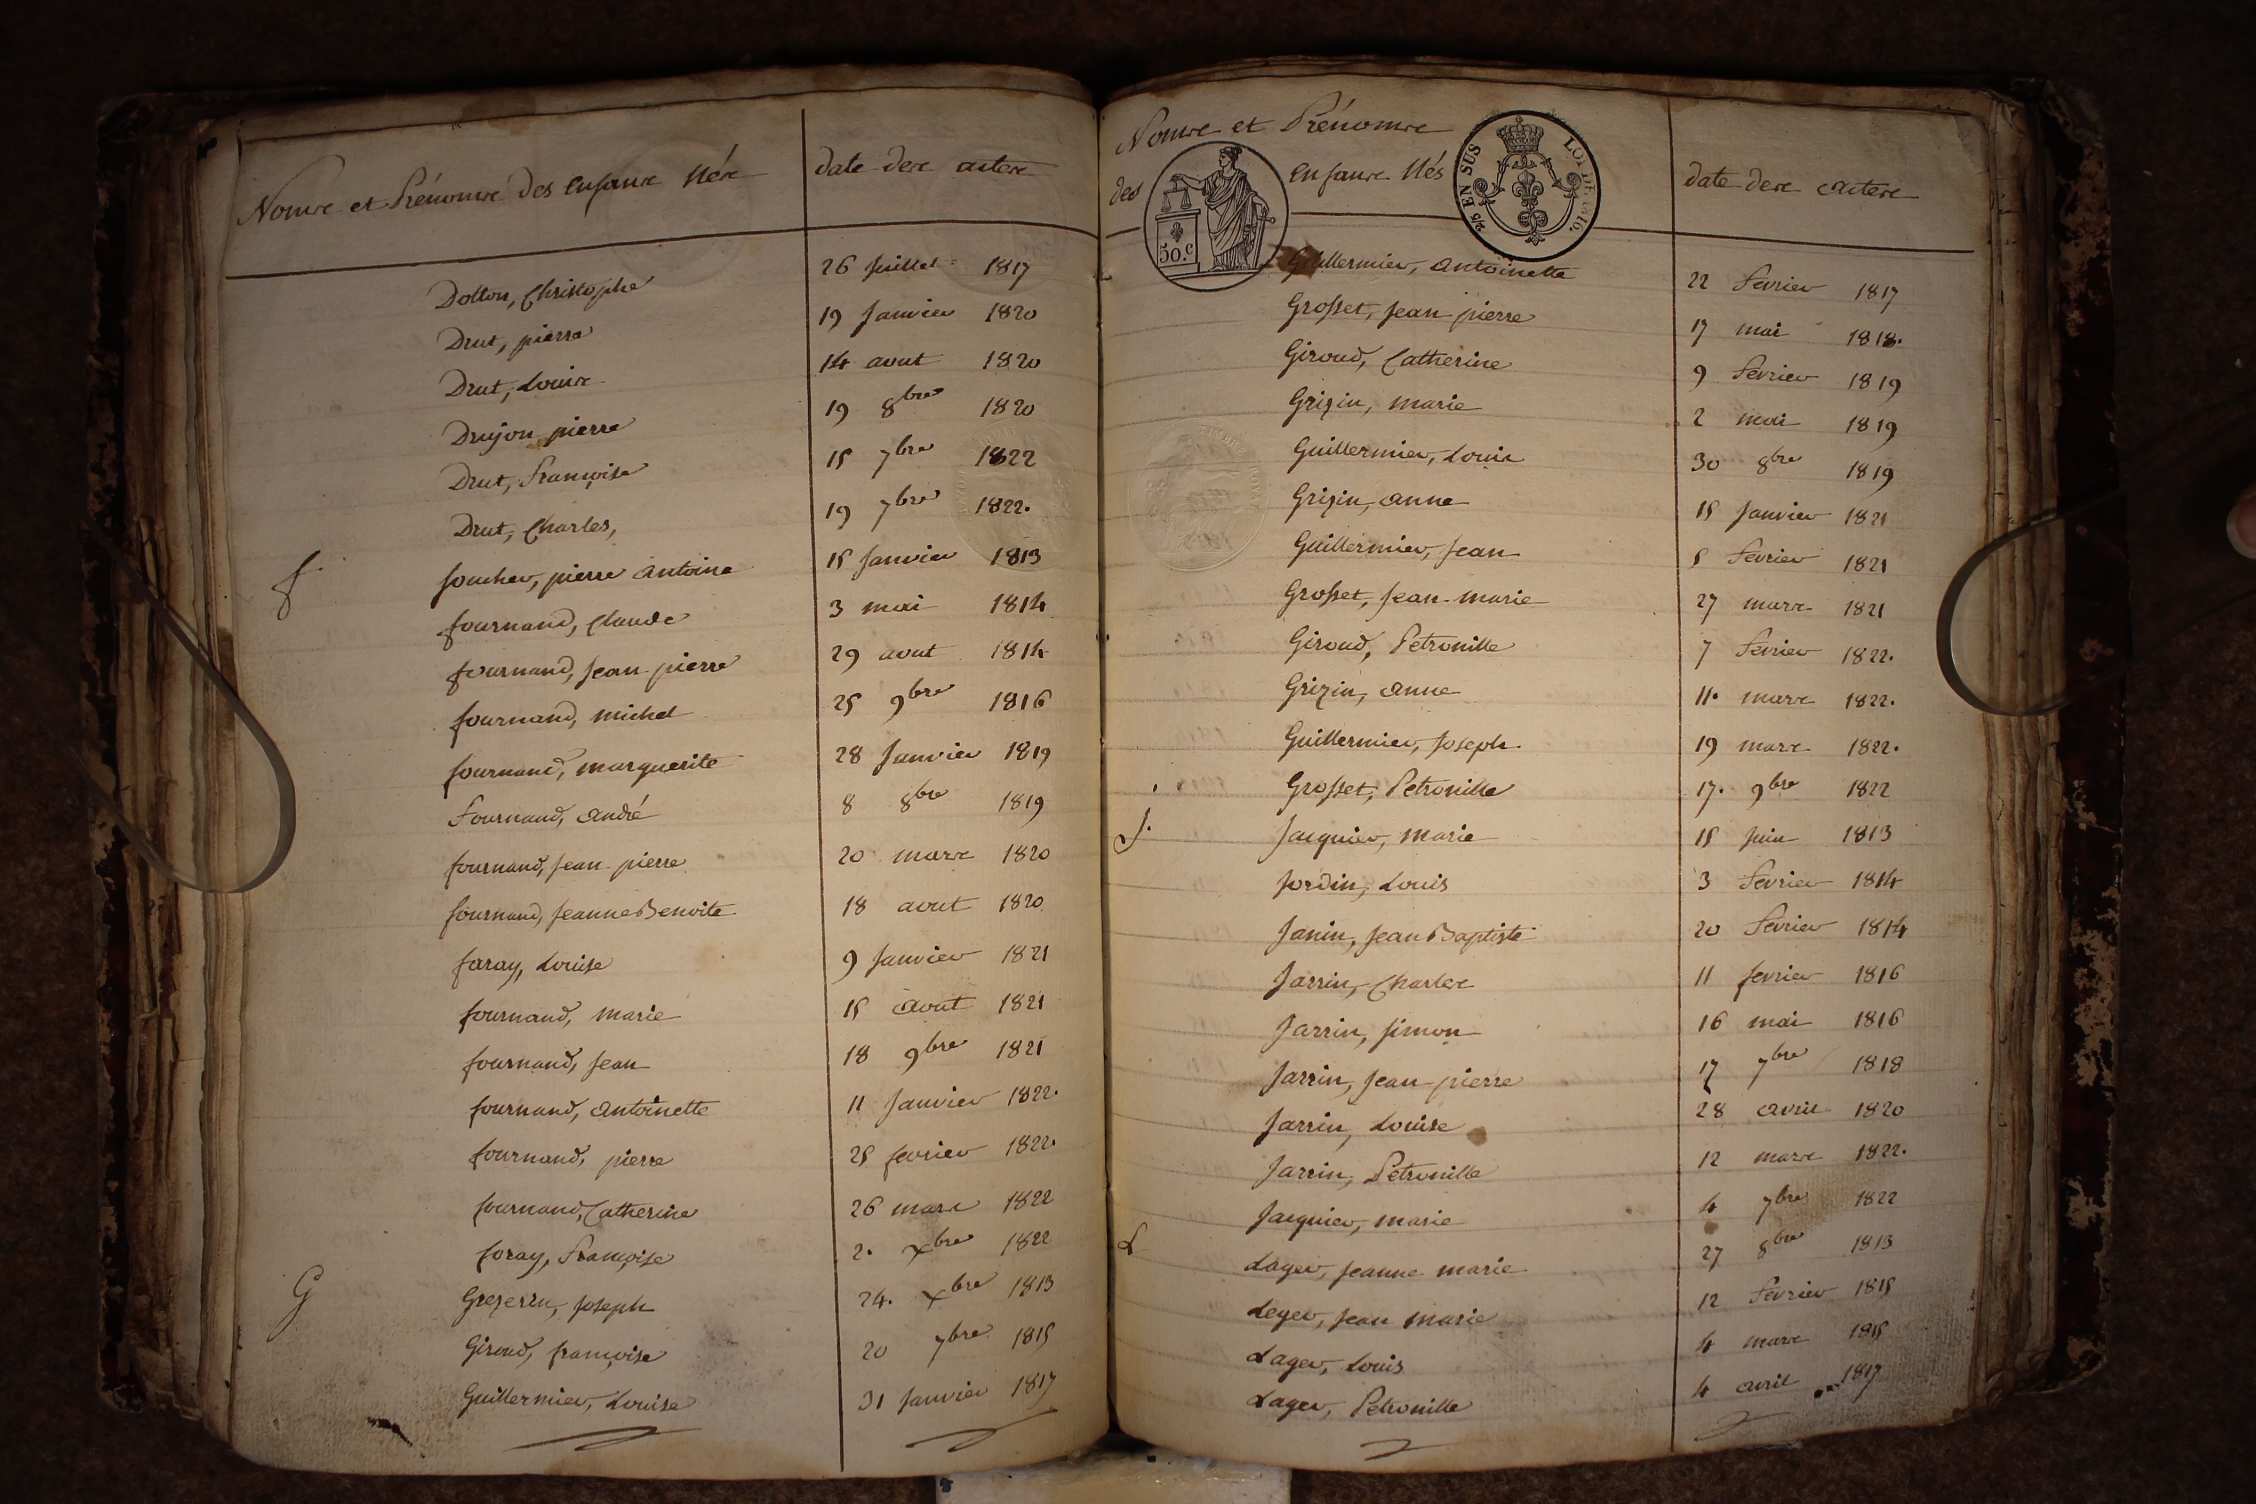 Noms et Prénoms des enfans Nés date des actes
Dotton, Christophe 26 Juillet 1817
Drut, pierre 19 Janvier 1820
Drut, Louis 14 aout 1820
Drujon pierre 19 8bre 1820
Drut, Françoise 15 7bre 1822
Drut, Charles, 19 7bre 1822.
f. foucher, pierre antoine 15 Janvier 1813
fournand, Claude 3 mai 1814
fournand, Jean pierre 29 aout 1814
fournand, michel 25 9bre 1816
fournand, marguerite 28 Janvier 1819
Fournand, andré 8 8bre 1819
fournand, Jean pierre 20 mars 1820
fournand, Jeanne Benoite 18 aout 1820
faray, Louise 9 Janvier 1821
fournand, marie 15 aout 1821
fournand, Jean 18 9bre 1821
fournand, antoinette 11 Janvier 1822.
fournand, pierre 25 fevrier 1822.
fournand, Catherine 26 mars 1822
foray, Françoise 2. xbre 1822
G Joseph 24. xbre 1813
Giroud, françoise 20 7bre 1815
Guillermier, Louise 31 Janvier 1817
Noms et Prénoms
des enfans Nés date des actes
50.c
2/5 EN SUS LOI DE 1816.
Guillermier, antoinette 22 Fevrier 1817
Grosset, Jean pierre 17 mai 1818.
Giroud, Catherine 9 Fevrier 1819
Grizin, marie 2 mai 1819
Guillermier, Louis 30 8bre 1819
Grizin, anne 15 Janvier 1821
Guillermier, Jean 5 Fevrier 1821
Grosset, Jean-marie 27 mars 1821
Giroud, Petronille 7 Fevrier 1822.
Grizin, anne 11. mars 1822.
Guillermier, Joseph. 19 mars 1822.
Grosset, Petronille 17. 9bre 1822
J. Jacquier, marie 15 Juin 1813
Jordin, Louis 3 Fevrier 1814
Janin, Jean Baptiste 20 Fevrier 1814
Jarrin, Charles 11 fevrier 1816
Jarrin, Simon 16 mai 1816
Jarrin, Jean-pierre 17 7bre 1818
Jarrin, Louise 28 avril 1820
Jarrin, Petronille 12 mars 1822.
Jacquier, marie 4 7bre 1822
L Lager, Jeanne marie 27 8bre 1813
Leger, Jean marie 12 Fevrier 1815
Lager, Louis 4 mars 1815
Lager, Petronille 4 avril 1817